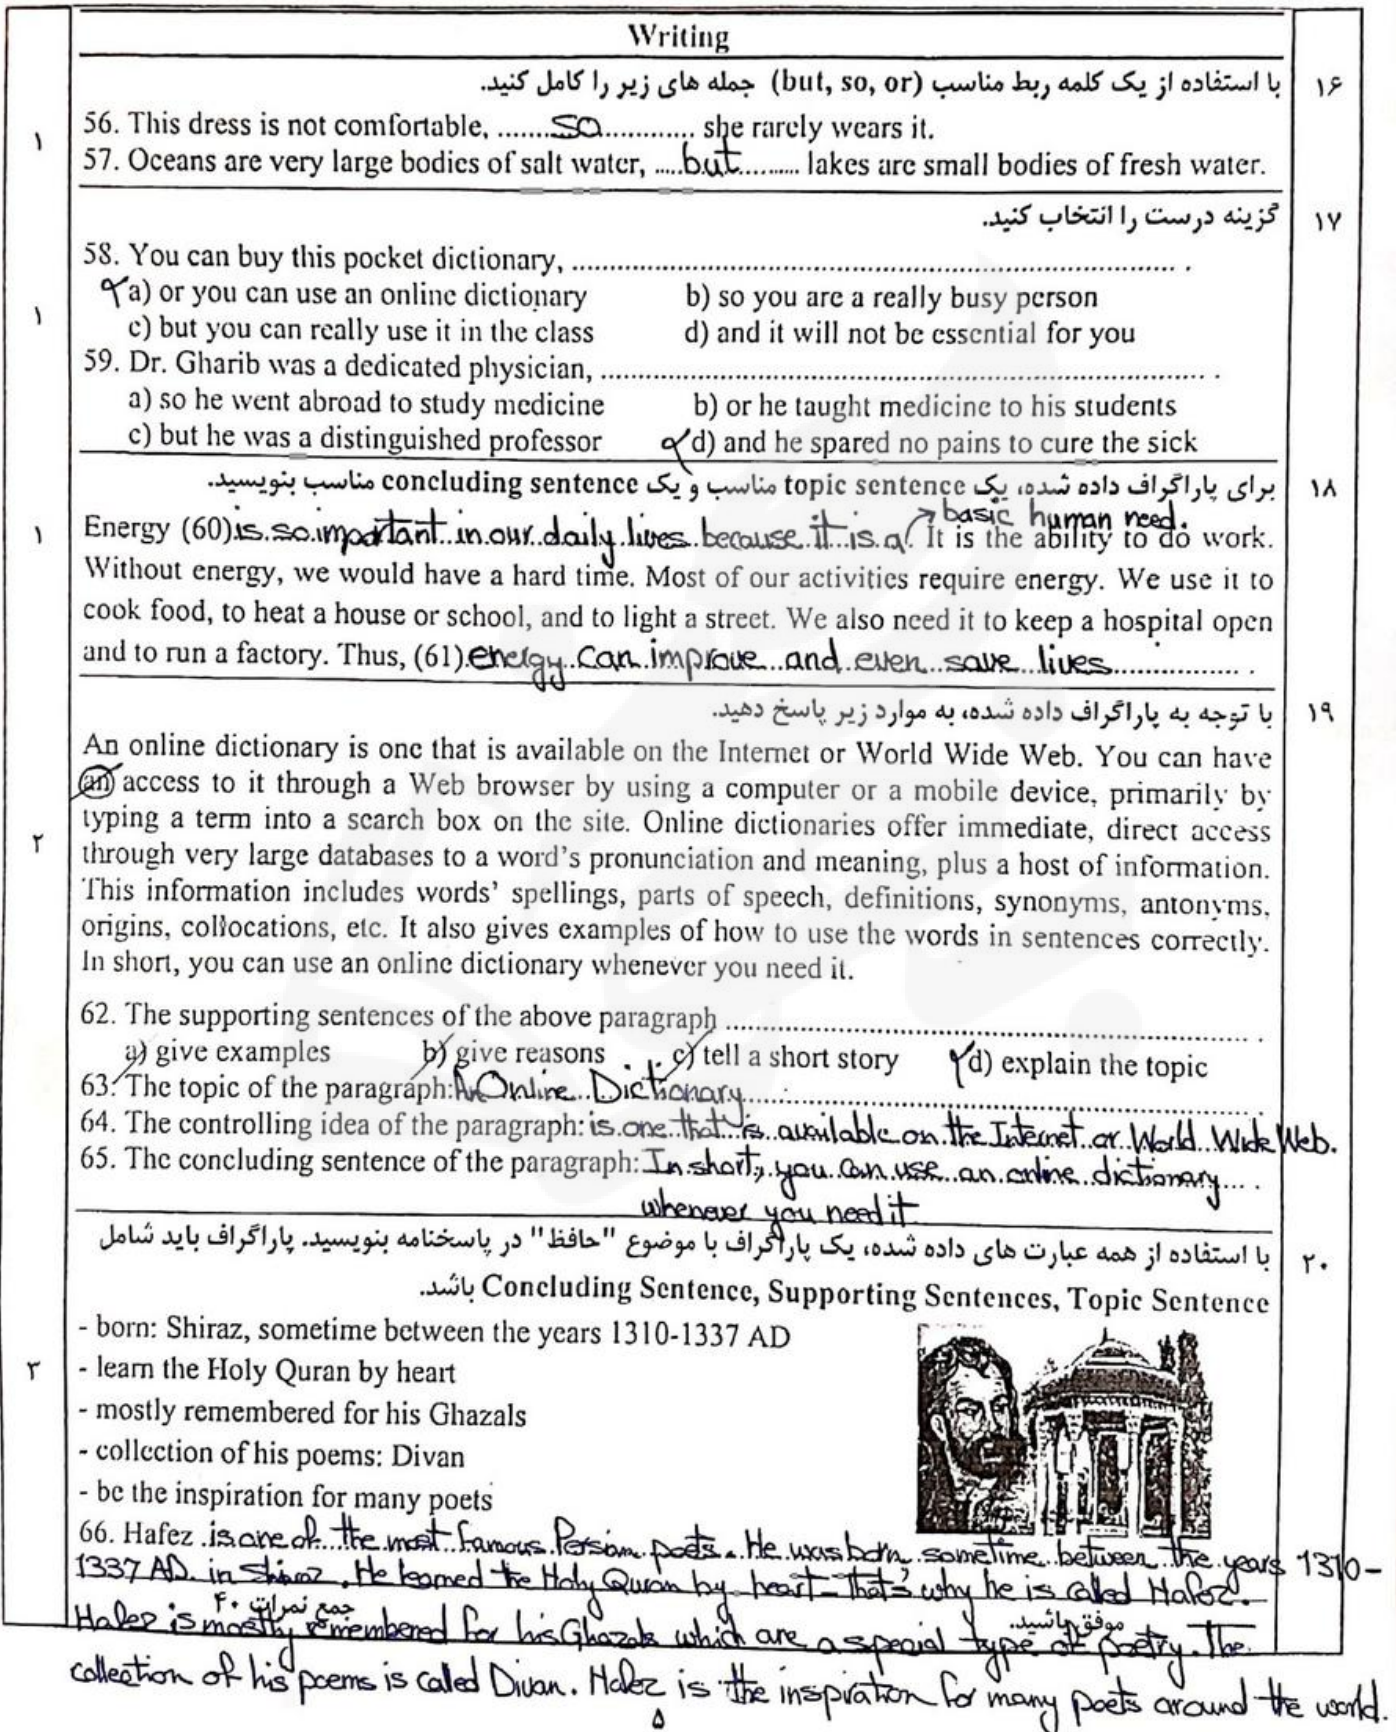 Writing
۱۶ با استفاده از یک کلمه ربط مناسب (but, so, or) جمله های زیر را کامل کنید.
۱
56. This dress is not comfortable, ........so............. she rarely wears it.
57. Oceans are very large bodies of salt water, .....but.......... lakes are small bodies of fresh water.
۱۷ گزینه درست را انتخاب کنید.
۱
58. You can buy this pocket dictionary, ................................................................ .
a) or you can use an online dictionary b) so you are a really busy person
c) but you can really use it in the class d) and it will not be essential for you
59. Dr. Gharib was a dedicated physician, ................................................................ .
a) so he went abroad to study medicine b) or he taught medicine to his students
c) but he was a distinguished professor d) and he spared no pains to cure the sick
۱۸ برای پاراگراف داده شده، یک topic sentence مناسب و یک concluding sentence مناسب بنویسید.
basic human need.
۱
Energy (60) is so important in our daily lives because it is a It is the ability to do work.
Without energy, we would have a hard time. Most of our activities require energy. We use it to
cook food, to heat a house or school, and to light a street. We also need it to keep a hospital open
and to run a factory. Thus, (61) energy can improve and even save lives................ .
۱۹ با توجه به پاراگراف داده شده، به موارد زیر پاسخ دهید.
۲
An online dictionary is one that is available on the Internet or World Wide Web. You can have
an access to it through a Web browser by using a computer or a mobile device, primarily by
typing a term into a search box on the site. Online dictionaries offer immediate, direct access
through very large databases to a word's pronunciation and meaning, plus a host of information.
This information includes words' spellings, parts of speech, definitions, synonyms, antonyms,
origins, collocations, etc. It also gives examples of how to use the words in sentences correctly.
In short, you can use an online dictionary whenever you need it.
62. The supporting sentences of the above paragraph ................................................ .
a) give examples b) give reasons c) tell a short story d) explain the topic
63. The topic of the paragraph: An Online Dictionary................................................ .
64. The controlling idea of the paragraph: is one that is available on the Internet or World Wide Web.
65. The concluding sentence of the paragraph: In short, you can use an online dictionary.... .
whenever you need it
۲۰ با استفاده از همه عبارت های داده شده، یک پاراگراف با موضوع "حافظ" در پاسخنامه بنویسید. پاراگراف باید شامل
Concluding Sentence, Supporting Sentences, Topic Sentence باشد.
۳
- born: Shiraz, sometime between the years 1310-1337 AD
- learn the Holy Quran by heart
- mostly remembered for his Ghazals
- collection of his poems: Divan
- be the inspiration for many poets
66. Hafez is one of the most famous Persian poets. He was born sometime between the years 1310-
1337 AD in Shiraz. He learned the Holy Quran by heart - that's why he is called Hafez.
جمع نمرات ۴۰ موفق باشید.
Hafez is mostly remembered for his Ghazals which are a special type of poetry. The
collection of his poems is called Divan. Hafez is the inspiration for many poets around the world.
۵